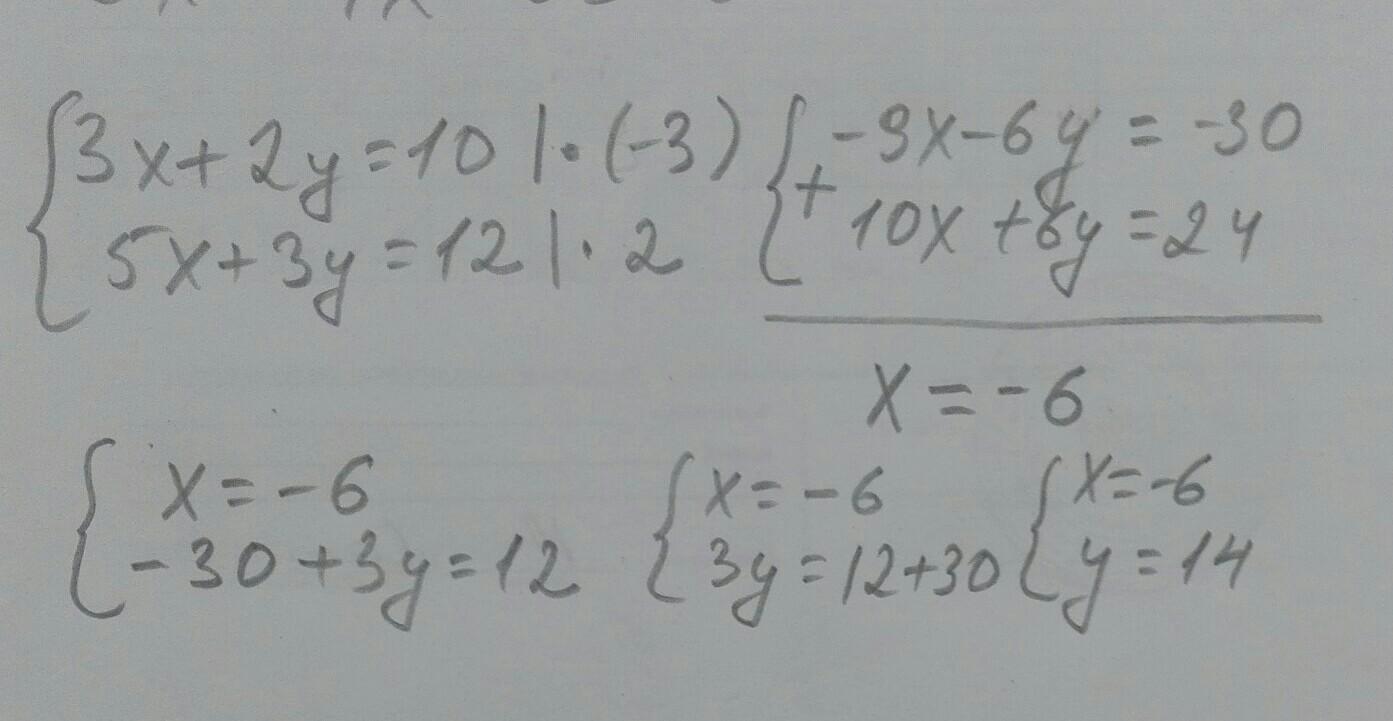 3x+2y=10 |·(-3)
5x+3y=12 |·2
-9x-6y=-30
+ 10x+6y=24
x=-6
x=-6
-30+3y=12
x=-6
3y=12+30
x=-6
y=14